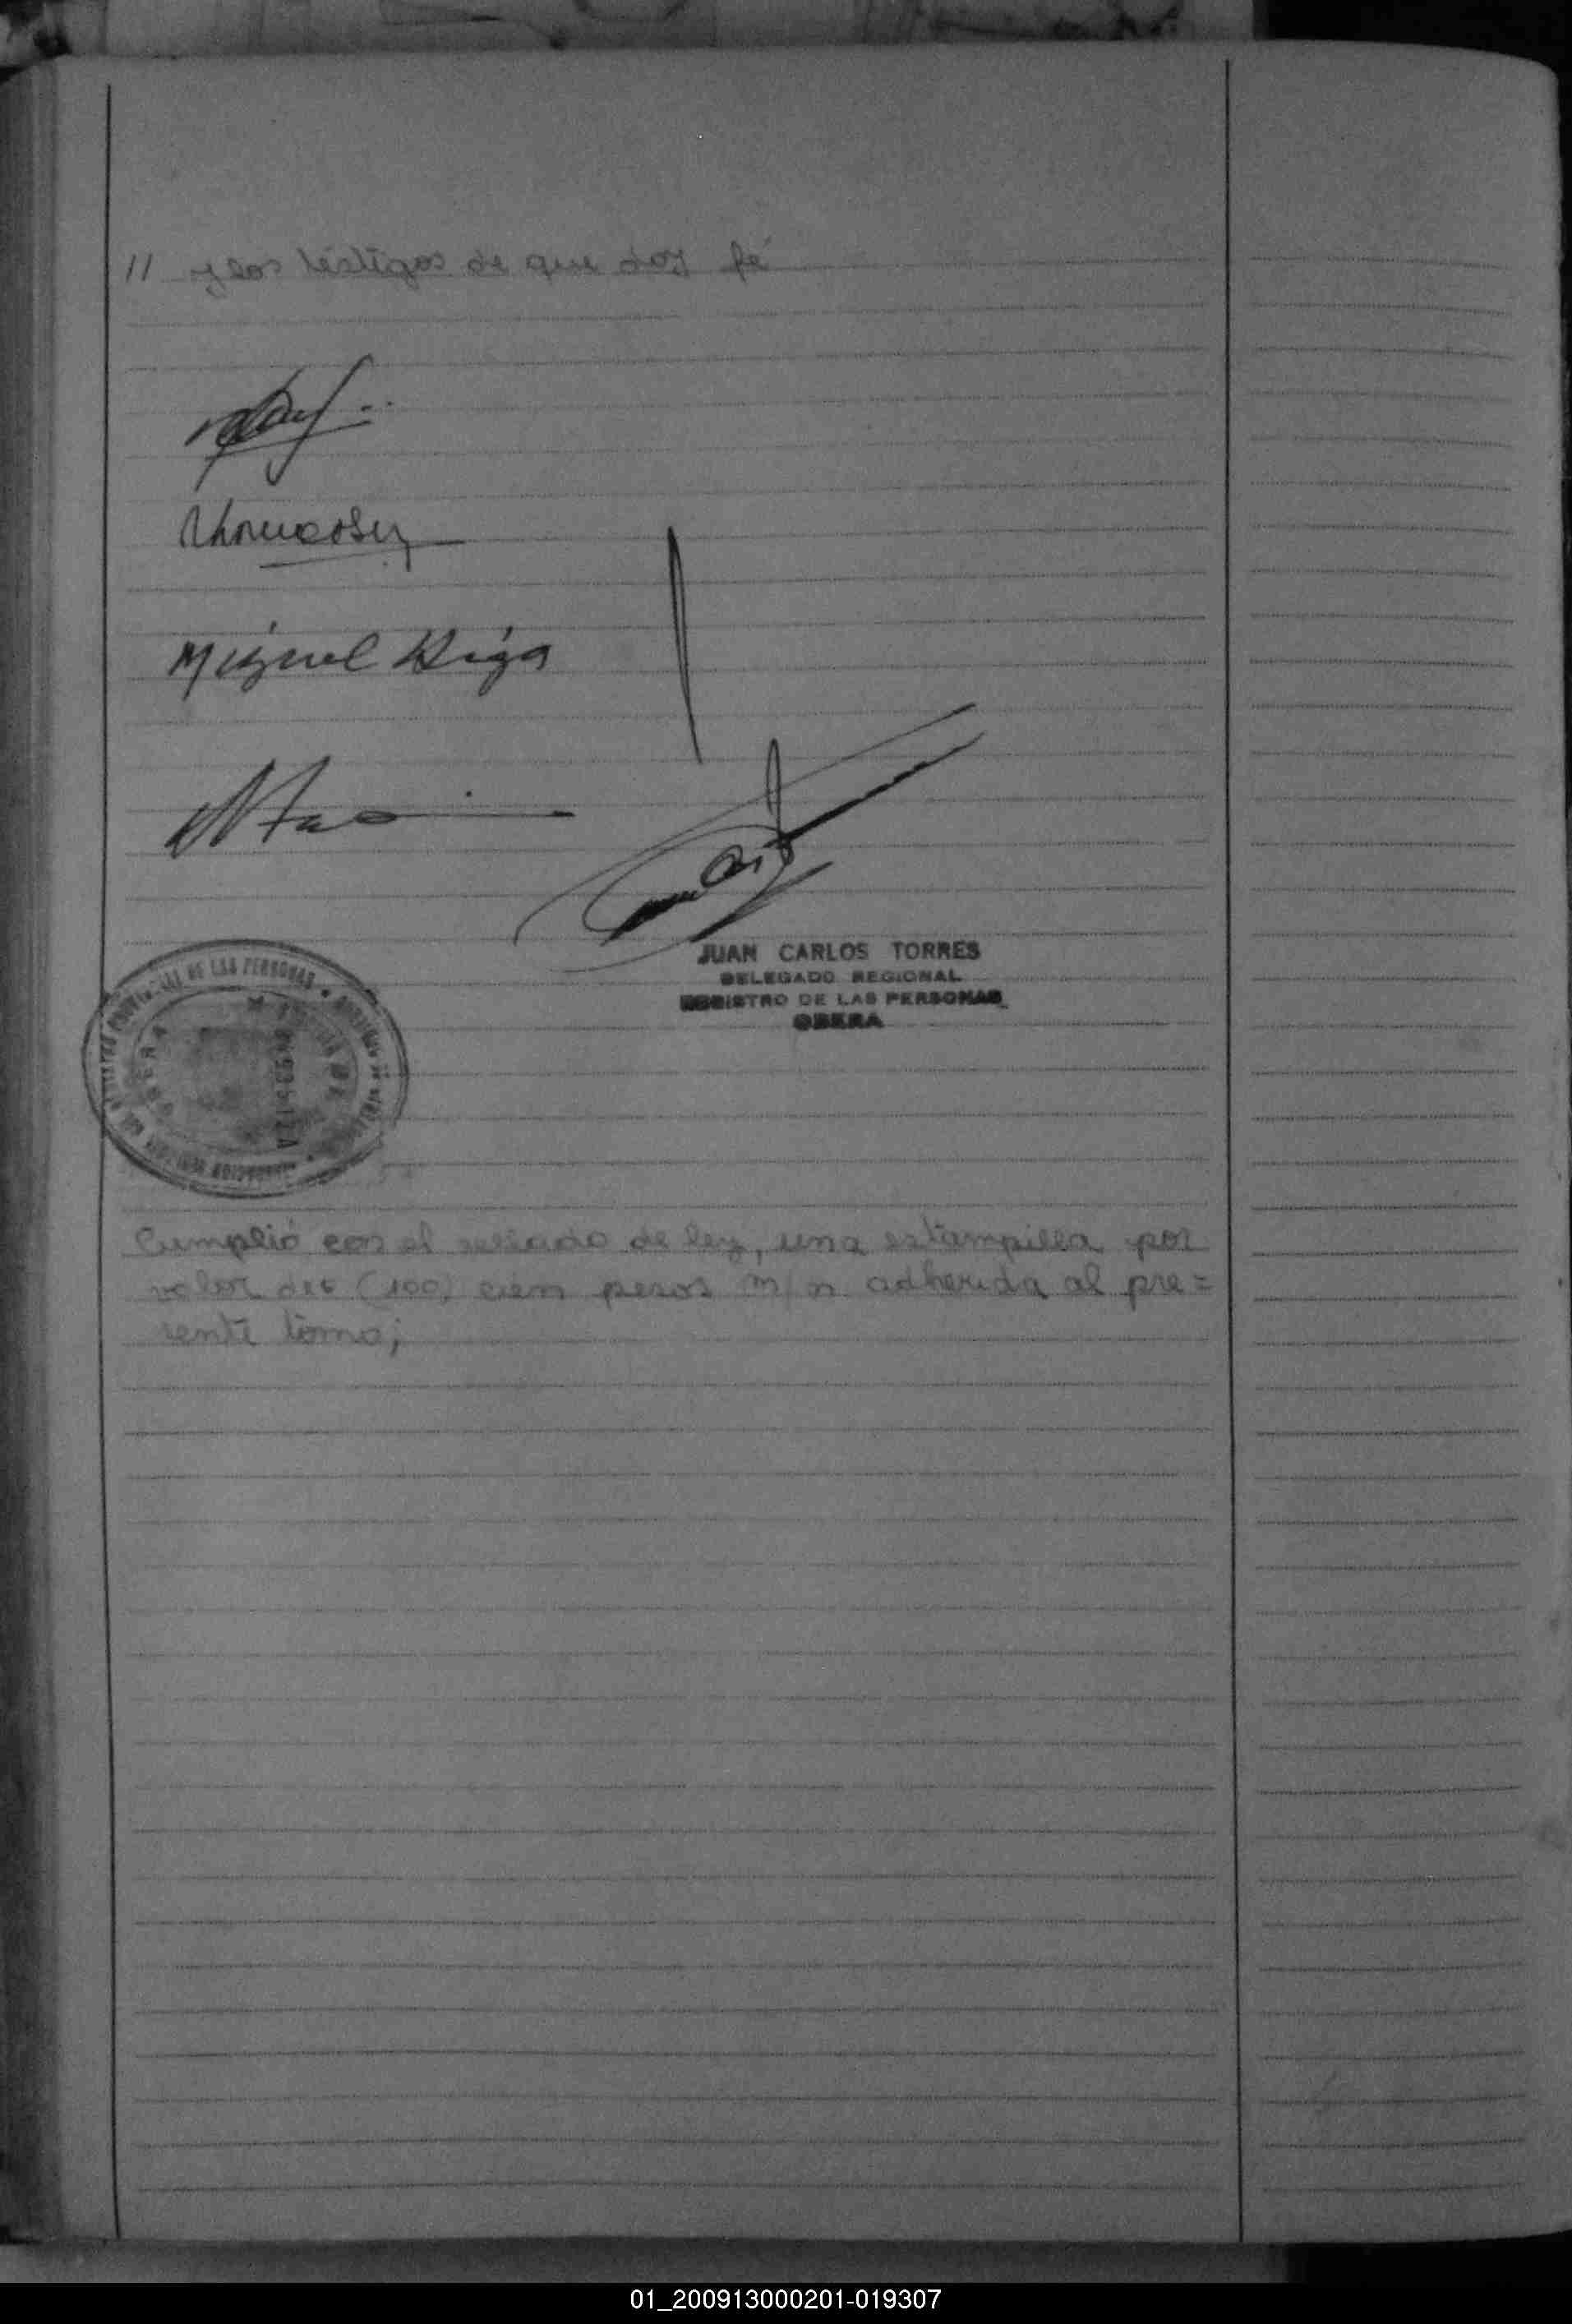 // y los testigos de que doy fé
Miguel
JUAN CARLOS TORRES
DELEGADO REGIONAL
REGISTRO DE LAS PERSONAS
OBERA
DE LAS PERSONAS
OBERA
Cumplió con el sellado de ley, una estampilla por
valor de $ (100) cien pesos m/n adherida al pre=
sente tomo;
01_200913000201-019307